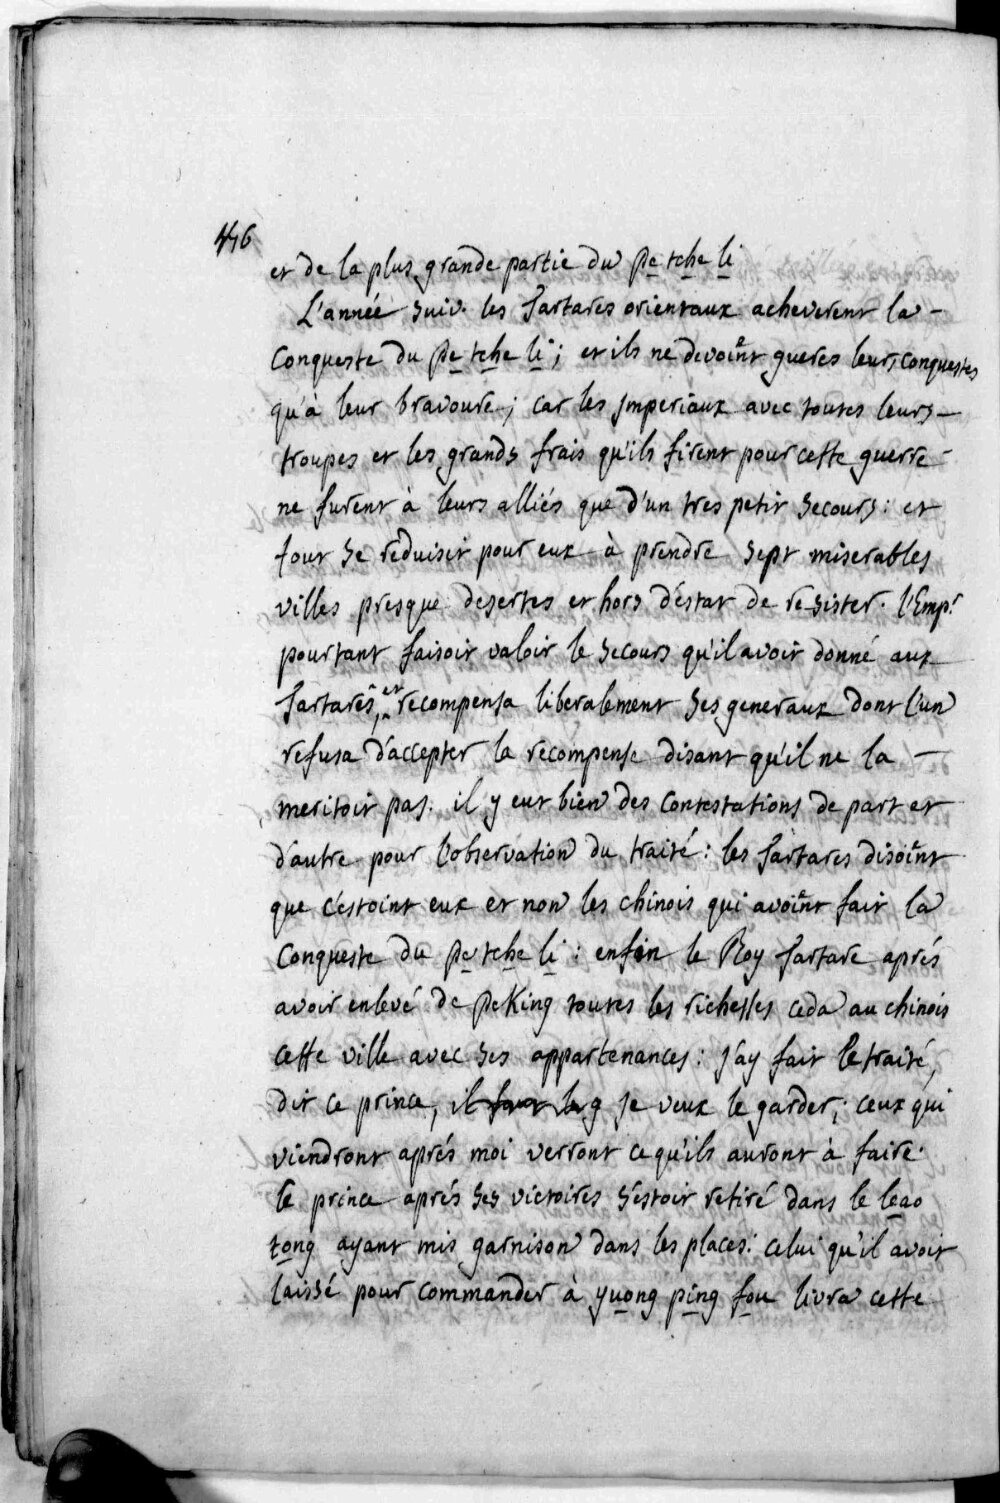 476
et de la plus grande partie du pe tche li
L'année suiv. les Tartares orientaux acheverent la -
Conqueste du pe tche li ; et ils ne devoint gueres leurs conquestes
qu'à leur bravoure ; car les Jmperiaux avec toutes leurs -
troupes et les grands frais qu'ils firent pour cette guerre -
ne furent à leurs alliés que d'un tres petit secours : et
tout se reduisit pour eux à prendre sept miserables
villes presque desertes et hors d'éstat de resister . l'Empr
pourtant faisoit valoir le secours qu'il avoit donné aux
Tartares et recompensa liberalement ses generaux dont l'un
refusa d'accepter la recompense disant qu'il ne la -
meritoit pas. il y eut bien des Contestations de part et
d'autre pour l'observation du traité : les Tartares disoint
que c'estoint eux et non les chinois qui avoint fait la
Conqueste du pe tche li : enfin le Roy Tartare aprés
avoir enlevé de peKing toutes les richesses ceda au chinois
cette ville avec ses appartenances : j'ay fait le traité,
dit ce prince, il faut le g je veux le garder ; ceux qui
viendront aprés moi verront ce qu'ils auront à faire.
le prince aprés ses victoires s'estoit retiré dans le leao
tong ayant mis garnison dans les places : celui qu'il avoit
laissé pour commander à yuong ping fou livra cette